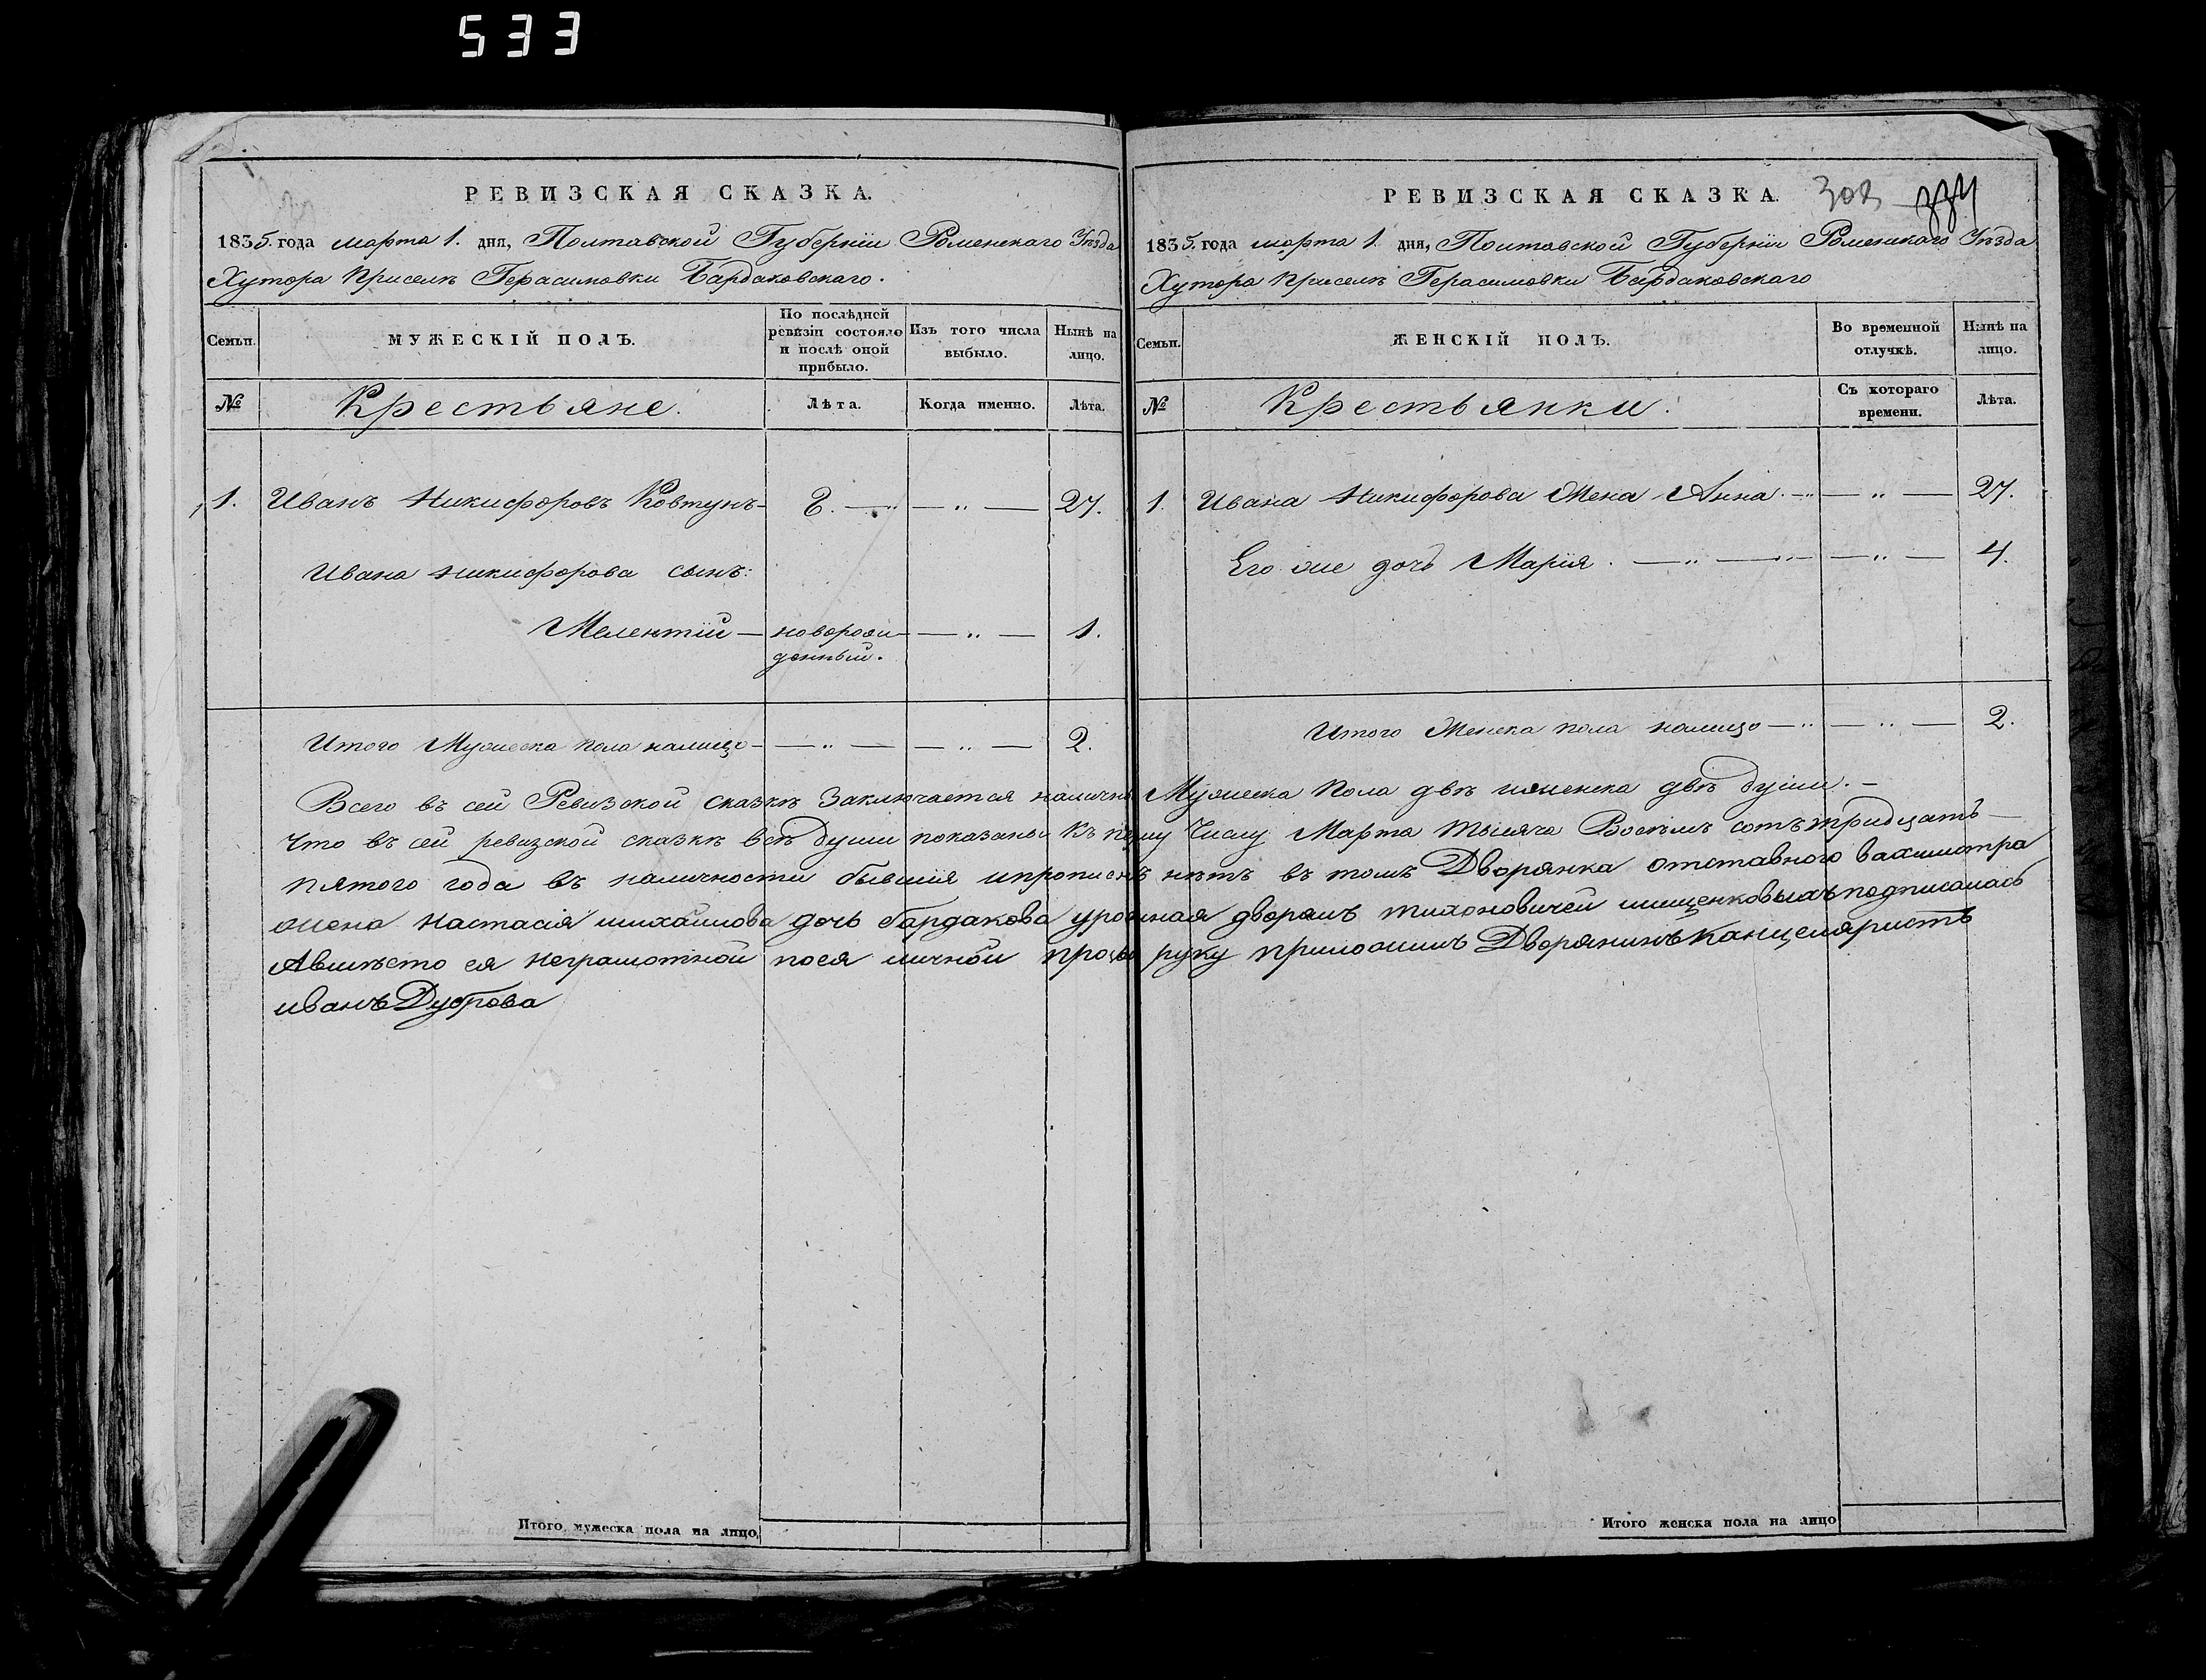 533
РЕВИЗСКАЯ СКАЗКА.
1835. года марта 1. дня, Полтавской Губернiи Роменскаго Уѣзда
Хутора приселкѣ Герасимовки Бардаковскаго.
Семьи.
МУЖЕСКІЙ ПОЛЪ.
По послѣдней ревизіи состояло и послѣ оной прибыло.
Изъ того числа выбыло.
Нынѣ на лицо.
№
Крестьяне.
Лѣта.
Когда именно.
Лѣта.
1. Иванъ Никифоровъ Ковтунъ — — „ — 27.
Ивана Никифорова сынъ:
Мелентiй — новорож — „ — 1.
денный.
Итого Мужеска пола налицо — — „ — — „ — 2.
РЕВИЗСКАЯ СКАЗКА. 303
1835. года марта 1. дня, Полтавской Губернiи Роменскаго Уѣзда
Хутора приселкѣ Герасимовки Бардаковскаго
Семьи.
ЖЕНСКІЙ ПОЛЪ.
Во временной отлучкѣ.
Нынѣ на лицо.
№
Крестьянки.
Съ котораго времени.
Лѣта.
1. Ивана Никифорова Жена Анна. — „ — „ — 27.
Его же дочь Марiя. — „ — „ — — „ — 4.
Итого Женска пола налицо — „ — „ — 2.
Всего въ сей Ревизской сказкѣ Заключается наличны Мужеска Пола двѣ иженска двѣ души. —
Что въ сей ревизской сказкѣ всѣ души показаны Къ Числу Марта тысяча Восемь сотъ тридцать —
пятого года въ наличности бывшiя ипрописныхъ нѣтъ въ томъ Дворянка отставного вахмистра
жена настасiя михайлова дочь бардакова урожная дворянъ тихоновичей ищенковыхъ подписалась
Авмѣсто ея неграмотной поея личной прозбѣ руку приложилъ Дворянинъ Канцеляристъ
иванъ Дуброва
Итого мужеска пола на лицо
Итого женска пола на лицо